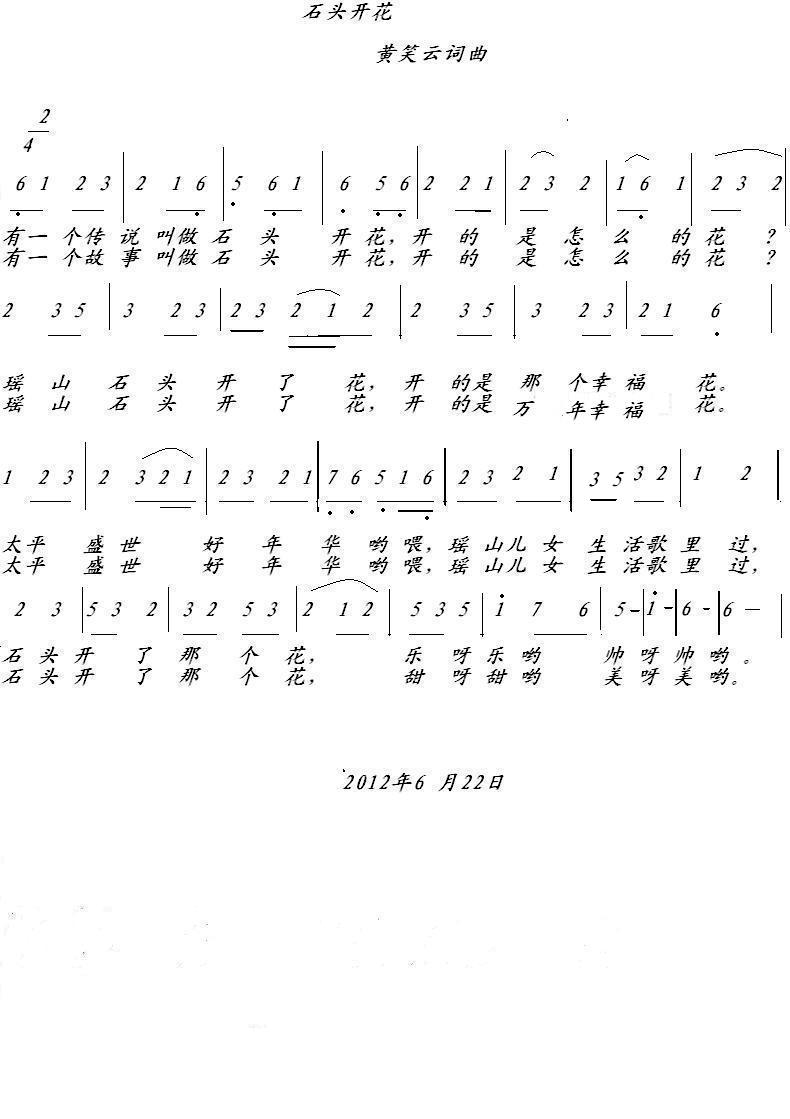 石头开花
黄笑云词曲
2
4
6 1 2 3 | 2 1 6 | 5 6 1 | 6 5 6 | 2 2 1 | 2 3 2 | 1 6 1 | 2 3 2 |
有一个传说叫做石头 开花，开的是怎么的花？
有一个故事叫做石头 开花，开的是怎么的花？
2 3 5 | 3 2 3 | 2 3 2 1 2 | 2 3 5 | 3 2 3 | 2 1 6 |
瑶山石头开了花，开的是那个幸福花。
瑶山石头开了花，开的是万年幸福花。
1 2 3 | 2 3 2 1 | 2 3 2 1 | 7 6 5 1 6 | 2 3 2 1 | 3 5 3 2 | 1 2 |
太平盛世好年华哟喂，瑶山儿女生活歌里过，
太平盛世好年华哟喂，瑶山儿女生活歌里过，
2 3 | 5 3 2 | 3 2 5 3 | 2 1 2 | 5 3 5 | 1 7 6 | 5 - | 1 - | 6 - | 6 — |
石头开了那个花，乐呀乐哟帅呀帅哟。
石头开了那个花，甜呀甜哟美呀美哟。
2012年6月22日